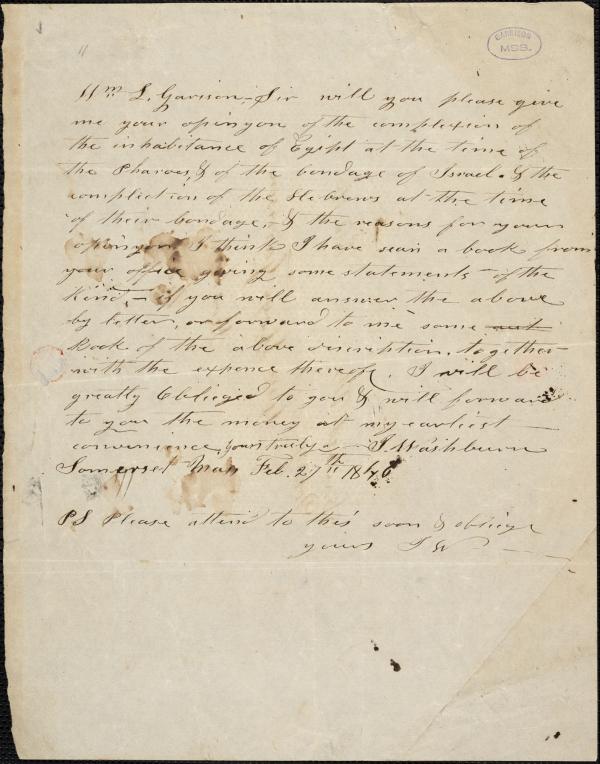 GARRISON
MSS.
Wm L. Garison, Sir will you please give
me your opinyon of the complexion of
the inhabitance of Egipt at the time of
the Pharoes, & of the bondage of Israel. & the
complection of the Hebrews at the time
of their bondage, & the reasons for your
opinyon I think I have sean a book from
your office giving some statements of the
kind, – if you will answer the above
by letter, or forward to me some
Book of the above discription, together
with the expence thereof, I will be
greatly Obleiged to you & will forward
to you the money at my earliest
convenience, yours truly J. Washburn
Somerset Mass Feb. 27th 1846
PS Please attend to this soon & obleige
yours J W